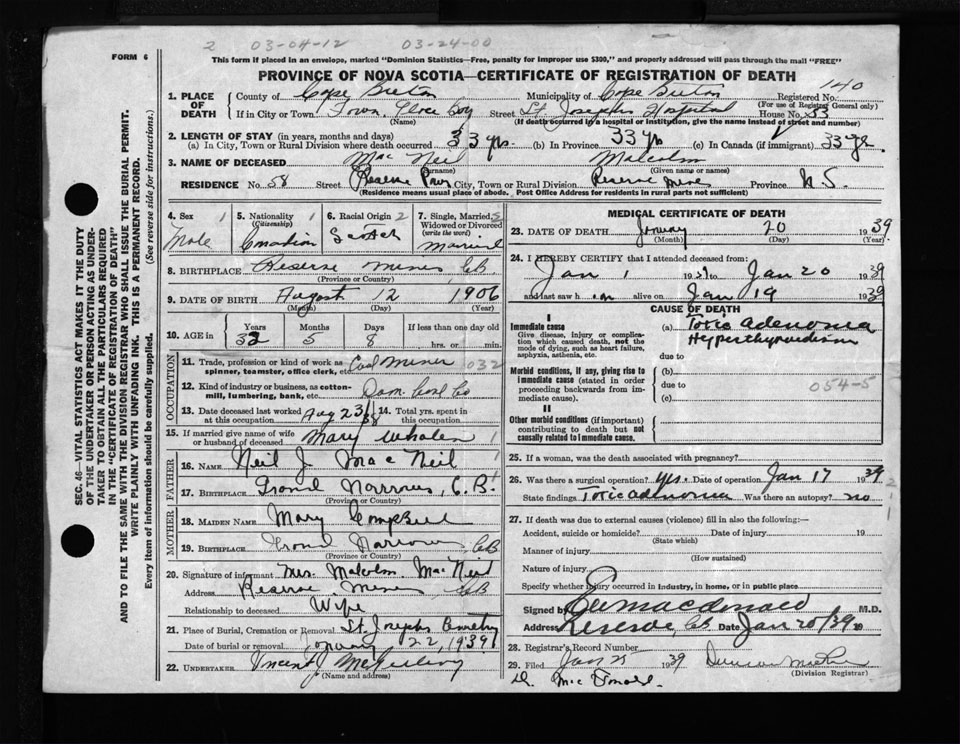 2 03-04-12 03-24-00
FORM 6
This form if placed in an envelope, marked "Dominion Statistics—Free, penalty for improper use $300," and properly addressed will pass through the mail "FREE"
PROVINCE OF NOVA SCOTIA—CERTIFICATE OF REGISTRATION OF DEATH
1. PLACE OF DEATH
County of Cape Breton Municipality of Cape Breton Registered No. 140
(For use of Registrar General only)
If in City or Town Town, Glace Bay Street St Josephs Hospital House No. 33
(Name) (If death occurred in a hospital or institution, give the name instead of street and number)
2. LENGTH OF STAY (in years, months and days)
(a) In City, Town or Rural Division where death occurred 33 yrs. (b) In Province 33 yrs (c) In Canada (if immigrant) 33 yr.
3. NAME OF DECEASED Mac Neil Malcolm
(Surname) (Given name or names)
RESIDENCE No. 58 Street Reserve Rows City, Town or Rural Division Reserve Mines Province N.S.
(Residence means usual place of abode. Post Office Address for residents in rural parts not sufficient)
4. Sex 1 Male
5. Nationality 1 (Citizenship) Canadian
6. Racial Origin 2 Scotch
7. Single, Married, Widowed or Divorced (write the word) Married
8. BIRTHPLACE Reserve Mines CB
(Province or Country)
9. DATE OF BIRTH August 12 1906
(Month) (Day) (Year)
10. AGE in Years 32 Months 5 Days 8 If less than one day old hrs. or min.
OCCUPATION
11. Trade, profession or kind of work as spinner, teamster, office clerk, etc. Coal Miner 032
12. Kind of industry or business, as cotton-mill, lumbering, bank, etc. Dom. Coal Co
13. Date deceased last worked at this occupation Aug 23/38 14. Total yrs. spent in this occupation
15. If married give name of wife or husband of deceased Mary Whalen 1
FATHER
16. NAME Neil J. Mac Neil 1
17. BIRTHPLACE Grand Narrows, C.B.
(Province or Country)
MOTHER
18. MAIDEN NAME Mary Campbell
19. BIRTHPLACE Grand Narrows CB
(Province or Country)
20. Signature of informant Mrs. Malcolm Mac Neil
Address Reserve Mines CB
Relationship to deceased Wife
21. Place of Burial, Cremation or Removal St. Josephs Cemetery
Date of burial or removal January 22, 1939
22. UNDERTAKER Vincent J
(Name and address)
MEDICAL CERTIFICATE OF DEATH
23. DATE OF DEATH January 20 1939
(Month) (Day) (Year)
24. I HEREBY CERTIFY that I attended deceased from:
Jan 1 1939 to Jan 20 1939
and last saw him alive on Jan 19 1939
CAUSE OF DEATH
I
Immediate cause (a) Toxic adenoma
Hyperthyroidism
Give disease, injury or complication which caused death, not the mode of dying, such as heart failure, asphyxia, asthenia, etc.
due to
Morbid conditions, if any, giving rise to immediate cause (stated in order proceeding backwards from immediate cause). (b)
due to 054-5
(c)
II
Other morbid conditions (if important) contributing to death but not causally related to immediate cause.
25. If a woman, was the death associated with pregnancy?
26. Was there a surgical operation? Yes. Date of operation Jan 17 1939
State findings Toxic adenoma Was there an autopsy? no
27. If death was due to external causes (violence) fill in also the following:—
Accident, suicide or homicide? Date of injury 19
(State which)
Manner of injury
(How sustained)
Nature of injury
Specify whether injury occurred in industry, in home, or in public place
Signed by Macdonald M.D.
Address Reserve, CB Date Jan 20/39 19
28. Registrar's Record Number
29. Filed Jan 21 1939 Duncan
(Division Registrar)
D. Mac Donald.
SEC. 46—VITAL STATISTICS ACT MAKES IT THE DUTY
OF THE UNDERTAKER OR PERSON ACTING AS UNDERTAKER TO OBTAIN ALL THE PARTICULARS REQUIRED
IN THE "CERTIFICATE OF REGISTRATION OF DEATH"
AND TO FILE THE SAME WITH THE DIVISION REGISTRAR WHO SHALL ISSUE THE BURIAL PERMIT.
WRITE PLAINLY WITH UNFADING INK. THIS IS A PERMANENT RECORD.
Every item of information should be carefully supplied. (See reverse side for instructions.)